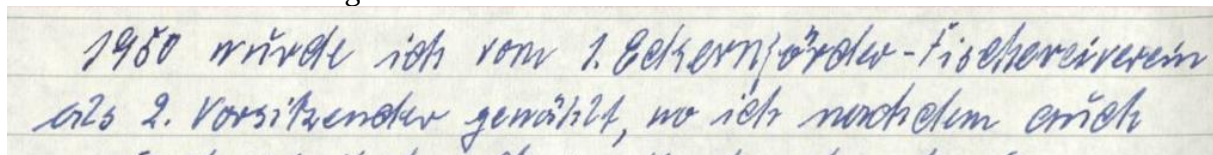 1950 wurde ich vom 1. Eckernförder-Fischereiverein
als 2. Vorsitzender gewählt, wo ich nachdem auch